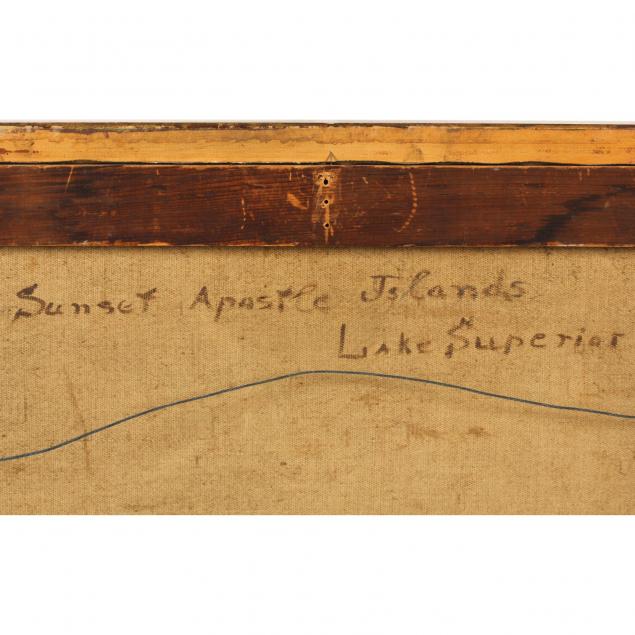 Sunset Apostle Islands
Lake Superior